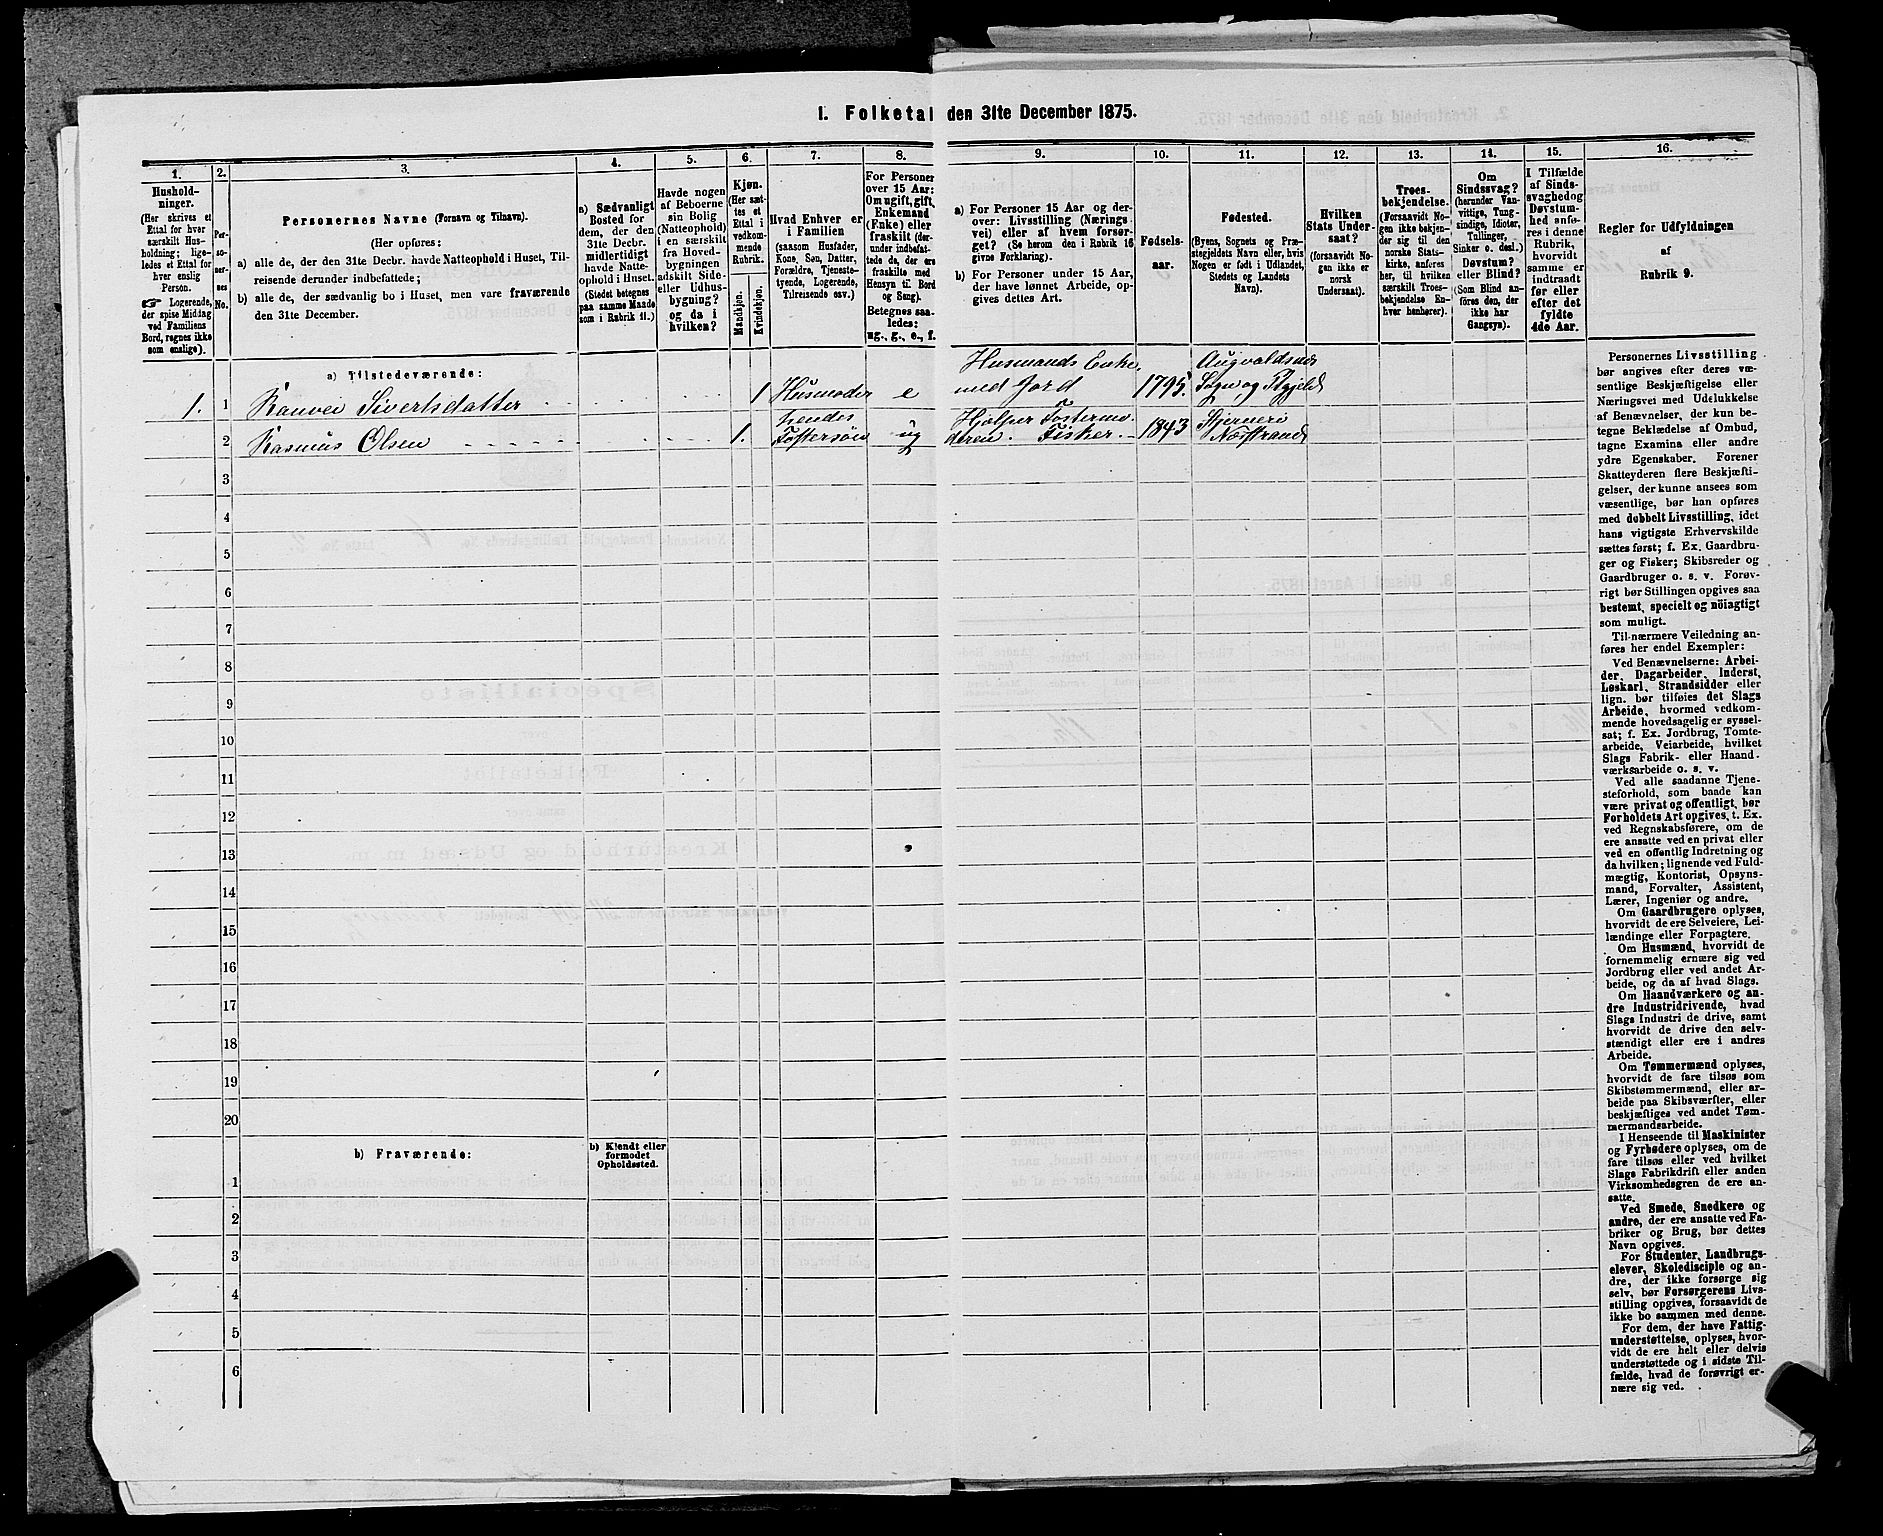 1. Folketal den 31te December 1875.
1.
Hushold-
ninger.
(Her skrives et
Ettal for hver
særskilt Hus-
holdning; lige-
ledes et Ettal for
hver enslig
Person.
☞ Logerende,
der spise Middag
ved Familiens
Bord, regnes ikke
som enslige).
2.
Per-
soner-
nes
No.
3.
Personernes Navne (Fornavn og Tilnavn).
(Her opføres:
a) alle de, der den 31te Decbr. havde Natteophold i Huset, Til-
reisende derunder indbefattede;
b) alle de, der sædvanlig bo i Huset, men vare fraværende
den 31te December.
4.
a) Sædvanligt
Bosted for
dem, der den
31te Decbr.
midlertidigt
havde Natte-
ophold i Huset.
(Stedet betegnes
paa samme Maade
som i Rubrik 11.)
5.
Havde nogen
af Beboerne
sin Bolig
(Natteophold)
i en særskilt
fra Hoved-
bygningen
adskilt Side-
eller Udhus-
bygning?
og da i
hvilken?
6.
Kjøn.
(Her sæt-
tes et
Ettal i
vedkom-
mende
Rubrik.
Mandkjøn.
Kvindekjøn.
7.
Hvad Enhver er
i Familien
(saasom Husfader,
Kone, Søn, Datter,
Forældre, Tjeneste-
tyende, Logerende,
Tilreisende osv.)
8.
For Personer
over 15 Aar:
Om ugift, gift,
Enkemand
(Enke) eller
fraskilt (der-
under indbefat-
tede de, der ere
fraskilte med
Hensyn til Bord
og Seng).
Betegnes saa-
ledes:
ug., g., e., f.
9.
a) For Personer 15 Aar og der-
over: Livsstilling (Nærings-
vei) eller af hvem forsør-
get? (Se herom den i Rubrik 16
givne Forklaring).
b) For Personer under 15 Aar,
der have lønnet Arbeide, op-
gives dettes Art.
10.
Fødsels-
aar.
11.
Fødested.
(Byens, Sognets og Præ-
stegjeldets Navn eller, hvis
Nogen er født i Udlandet,
Stedets og Landets
Navn).
12.
Hvilken
Stats Under-
saat?
(forsaavidt No-
gen ikke er
norsk
Undersaat).
13.
Troes-
bekjendelse.
(Forsaavidt No-
gen ikke bekjen-
der sig til den
norske Stats-
kirke, anføres
her, til hvilken
særskilt Troes-
bekjendelse En-
hver henhører).
14.
Om
Sindssvag?
(herunder Van-
vittige, Tung-
sindige, Idioter,
Tullinger,
Sinker o. desl.).
Døvstum?
eller Blind?
(Som Blind an-
føres den, der
ikke har
Gangsyn).
15.
I Tilfælde
af Sinds-
svaghed og
Døvstum-
hed anfø-
res i denne
Rubrik,
hvorvidt
samme er
indtraadt
før eller
efter det
fyldte
4de Aar.
16.
Regler for Udfyldningen
af
Rubrik 9.
a) Tilstedeværende:
1. 1 Ranvei Sivertsdatter 1 Husmoder e Husmands Enke med Jord 1795. Augvaldsnæs Sogn og Pgjeld
2 Rasmus Olsen 1. hendes Fostersøn ug Hjælper Fostermoderen. Fisker. 1843 Stjerneri Nærstrand
3
4
5
6
7
8
9
10
11
12
13
14
15
16
17
18
19
20
b) Fraværende:
b) Kjendt eller
formodet
Opholdssted.
1
2
3
4
5
6
Personernes Livsstilling
bør angives efter deres væ-
sentlige Beskjæftigelse eller
Næringsvei med Udelukkelse
af Benævnelser, der kun be-
tegne Beklædelse af Ombud,
tagne Examina eller andre
ydre Egenskaber. Forener
Skatteyderen flere Beskjæfti-
gelser, der kunne ansees som
væsentlige, bør han opføres
med dobbelt Livsstilling, idet
hans vigtigste Erhvervskilde
sættes først; f. Ex. Gaardbru-
ger og Fisker; Skibsreder og
Gaardbruger o. s. v. Forøv-
rigt bør Stillingen opgives saa
bestemt, specielt og nöiagtigt
som muligt.
Til nærmere Veiledning an-
føres her endel Exempler:
Ved Benævnelserne: Arbei-
der, Dagarbeider, Inderst,
Løskarl, Strandsidder eller
lign. bør tilføies det Slags
Arbeide, hvormed vedkom-
mende hovedsagelig er syssel-
sat; f. Ex. Jordbrug, Tomte-
arbeide, Veiarbeide, hvilket
Slags Fabrik- eller Haand-
værksarbeide o. s. v.
Ved alle saadanne Tjene-
steforhold, som baade kan
være privat og offentligt, bør
Forholdets Art opgives, t. Ex.
ved Regnskabsførere, om de
ere ansatte ved en privat eller
ved en offentlig Indretning og
da hvilken; lignende ved Fuld-
mægtig, Kontorist, Opsyns-
mand, Forvalter, Assistent,
Lærer, Ingeniør og andre.
Om Gaardbrugere oplyses,
hvorvidt de ere Selveiere, Lei-
lændinge eller Forpagtere.
Om Husmænd, hvorvidt de
fornemmelig ernære sig ved
Jordbrug eller ved andet Ar-
beide, og da af hvad Slags.
Om Haandværkere og an-
dre Industridrivende, hvad
Slags Industri de drive, samt
hvorvidt de drive den selv-
stændigt eller ere i andres
Arbeide.
Om Tømmermænd oplyses,
hvorvidt de fare tilsøs som
Skibstømmermænd, eller ar-
beide paa Skibsværfter, eller
beskjæftiges ved andet Tøm-
mermandsarbeide.
I Henseende til Maskinister
og Fyrbødere oplyses, om de
fare tilsøs eller ved hvilket
Slags Fabrikdrift eller anden
Virksomhedsgren de ere an-
satte.
Ved Smede, Snedkere og
andre, der ere ansatte ved Fa-
briker og Brug, bør dettes
Navn opgives.
For Studenter, Landbrugs-
elever, Skoledisciple og an-
dre, der ikke forsørge sig
selv, bør Forsørgerens Livs-
stilling opgives, forsaavidt de
ikke bo sammen med denne.
For dem, der have Fattig-
understøttelse, oplyses, hvor-
vidt de ere helt eller delvis
understøttede og i sidste Til-
fælde, hvad de forøvrigt er-
nære sig ved.